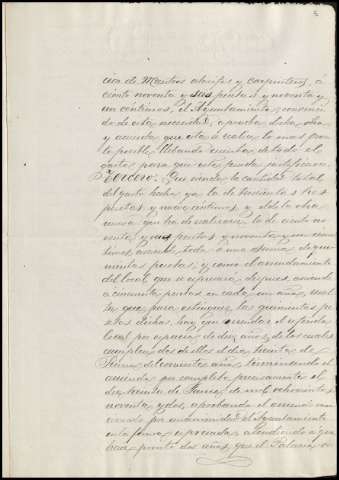 cion de Maestros alarifes y carpinteros, á
ciento noventa y seis pesetas y noventa y
un centimos, el Ayuntamiento, convenci-
do de esta necesidad, aprueba dicha obra
y acuerda que esta se realize lo mas pron-
to posible llebando cuenta de todo el
gasto para que este pueda justificarse.
Tercero: Que siendo la cantidad total
del gasto hecho ya la de trescientas tres
pesetas y nueve centimos, y el de la obra
nueva que ha de realizarse, la de ciento no-
venta y seis pesetas y noventa y un centi-
mos, asciende todo á una suma de qui-
nientas pesetas, y como el arrendamiento
del local que se espresará despues, asciende
a cincuenta pesetas en cada un año, resul-
ta que para estinguir las quinientas pe-
setas dichas, hay que arrendar el referido
local por espacio de diez años, de los cuales
cumplen dos de ellos el dia treinta de
Junio del corriente año, terminando el
arriendo por completo precisamente el
dia treinta de Junio de mil ochocientos
noventa y dos, aprobando el
acuerdo por unanimidad el Ayuntamiento
en la forma espresada, atendiendo á que
hace pronto dos años, que el